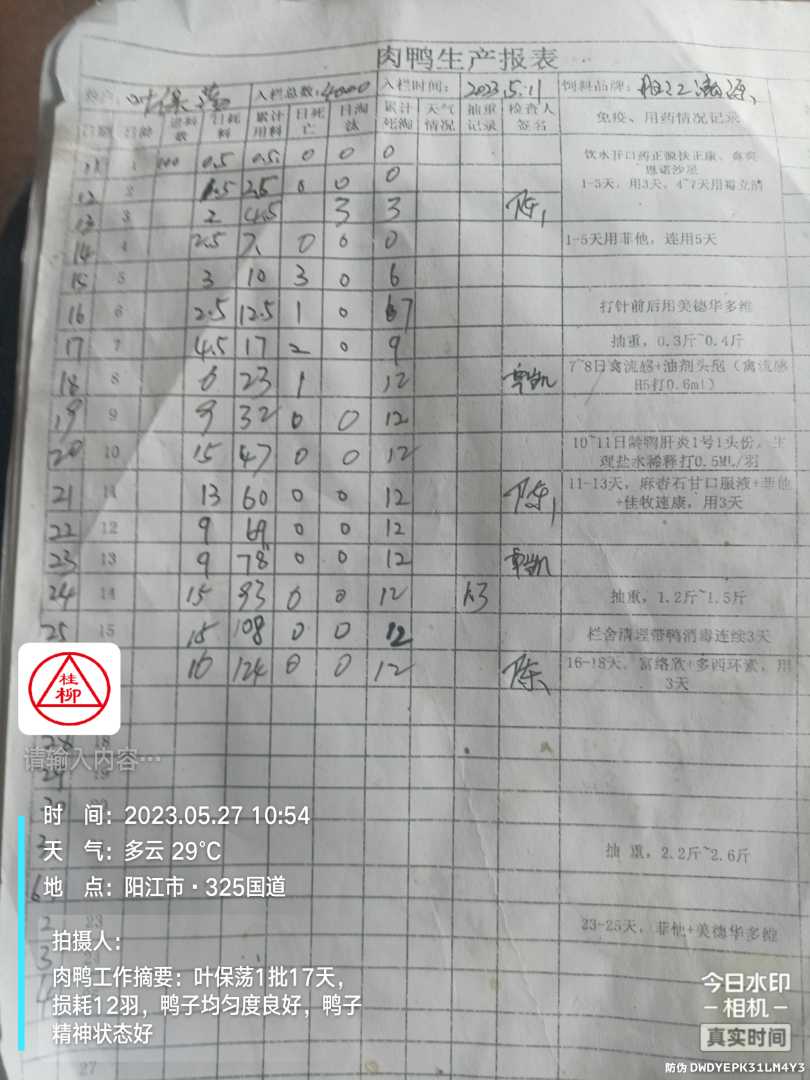 肉鸭生产报表
叶保荡 入栏总数: 4000 入栏时间: 2023.5.11 饲料品牌:
日期 日龄 进料数 日耗料 累计用料 日死亡 日淘汰 累计死淘 天气情况 抽重记录 检查人签名 免疫、用药情况记录
11 1 0.5 0.5 0 0 0 饮水开口药正腺扶正康、
1-5天,用3天,4~7天用霉立清
12 2 1.5 2.5 0 0 0
13 3 2 4.5 3 3 陈
14 4 2.5 7 0 0 0 1-5天用菲他,连用5天
15 5 3 10 3 0 6
16 6 2.5 12.5 1 0 7 打针前后用美德华多维
17 7 4.5 17 2 0 9 抽重,0.3斤~0.4斤
18 8 6 23 1 12 7~8日禽流感+油剂头孢(禽流感H5打0.6ml)
19 9 9 32 0 0 12
20 10 15 47 0 0 12 10~11日龄鸭肝炎1号1头份,生理盐水稀释打0.5ML/羽
21 11 13 60 0 0 12 陈 11-13天,麻杏石甘口服液+菲他+佳牧速康,用3天
22 12 9 69 0 0 12
23 13 9 78 0 0 12
24 14 15 93 0 0 12 1.3 抽重,1.2斤~1.5斤
25 15 15 108 0 0 12 栏舍清理带鸭消毒连续3天
16 124 0 0 12 陈 16-18天,富络欣+多西环素,用3天
桂柳
28 18
请输入内容…
29 19
时 间:2023.05.27 10:54
抽 重,2.2斤~2.6斤
天 气:多云 29℃
地 点:阳江市·325国道
2 23 23-25天,菲他+美德华多维
拍摄人:
肉鸭工作摘要:叶保荡1批17天,
损耗12羽,鸭子均匀度良好,鸭子
精神状态好
27
今日水印
相机
真实时间
防伪 DWDYEPK31LM4Y3